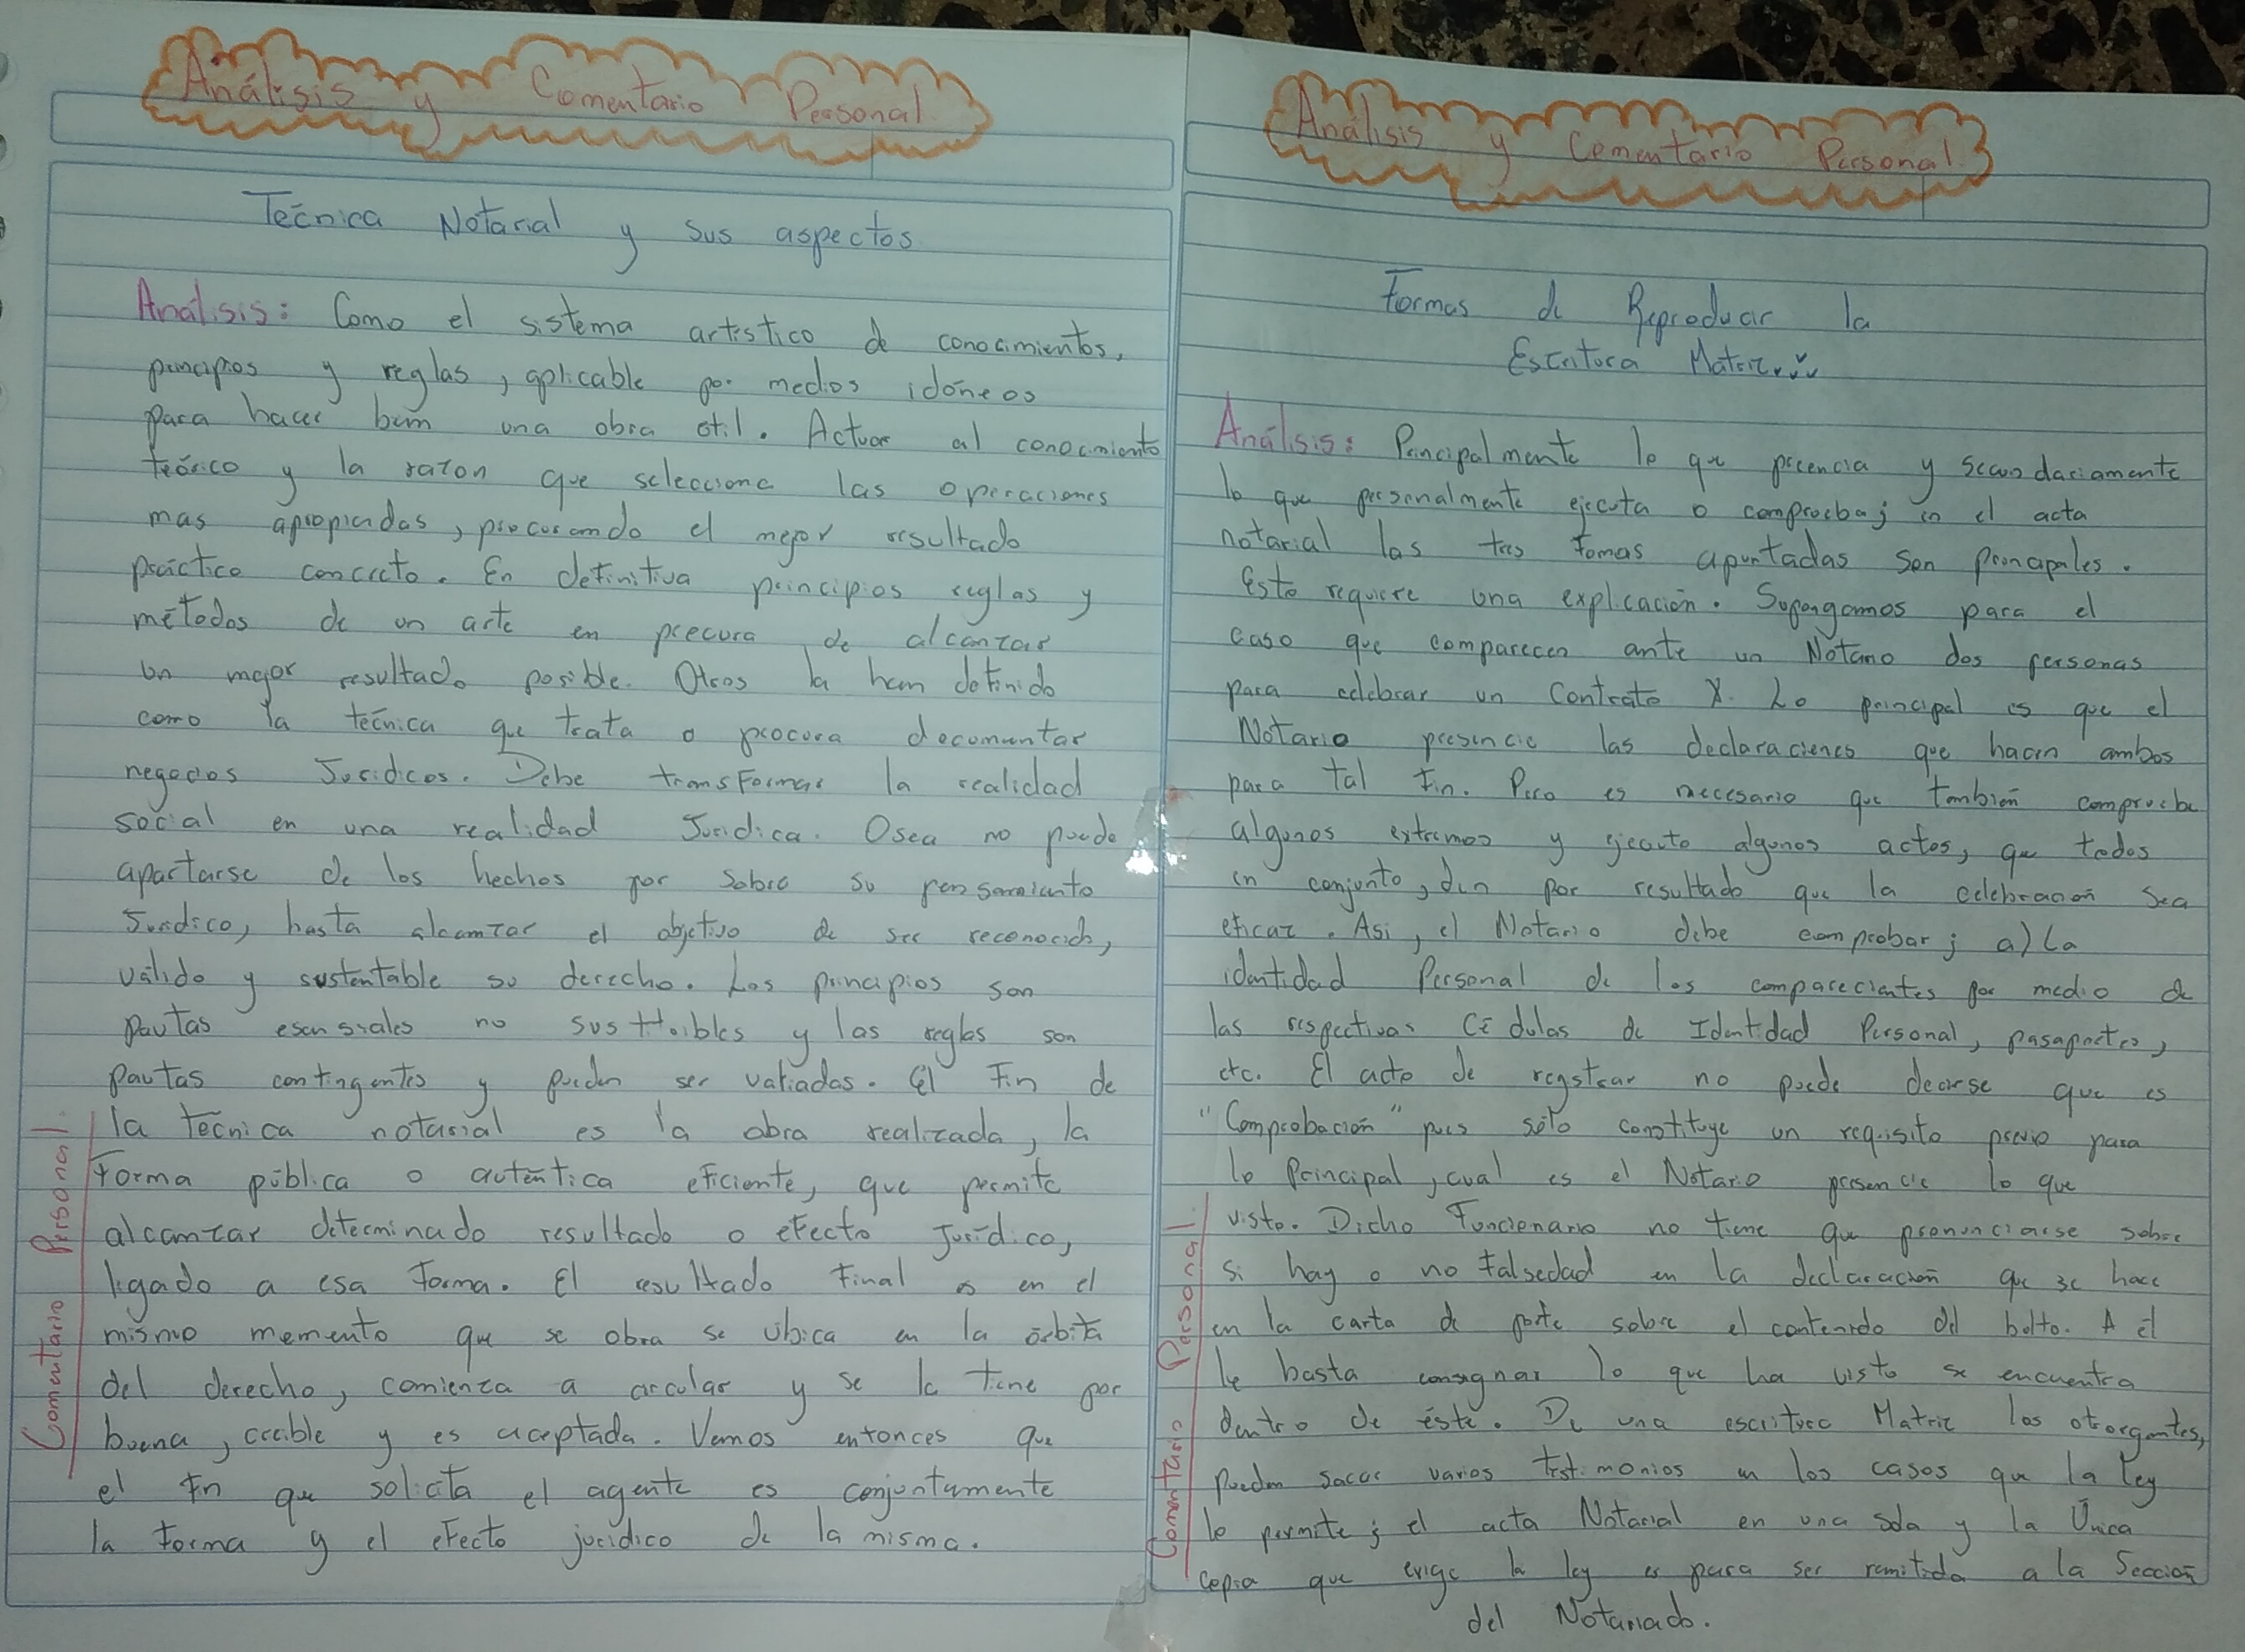 Análisis y Comentario Personal
Tecnica Notarial y sus aspectos
Análisis: Como el sistema artistico de conocimientos,
principios y reglas, aplicable por medios idóneos
para hacer bien una obra util. Actuar al conocimiento
teórico y la razon que selecciona las operaciones
mas apropiadas, procurando el mejor resultado
práctico concreto. En definitiva principios reglas y
métodos de un arte en procura de alcanzar
un mejor resultado posible. Otros la han definido
como la técnica que trata o procura documentar
negocios Juridicos. Debe transformar la realidad
social en una realidad Juridica. Osea no puede
apartarse de los hechos por sobre su pensamiento
Juridico, hasta alcanzar el objetivo de ser reconocido,
válido y sustentable su derecho. Los principios son
pautas esensiales no sustituibles y las reglas son
pautas contingentes y pueden ser variadas. El Fin de
la técnica notarial es la obra realizada, la
Forma pública o auténtica eficiente, que permite
alcanzar determinado resultado o efecto Jurídico,
ligado a esa Forma. El resultado Final es en el
mismo momento que se obra se úbica en la órbita
del derecho, comienza a circular y se la tiene por
buena, creible y es aceptada. Vemos entonces que
el Fin que solicita el agente es conjuntamente
la Forma y el efecto juridico de la misma.
Comentario Personal.
Análisis y Comentario Personal
Formas de Reproducir la
Escritura Matriz...
Análisis: Principalmente lo que precencia y secundariamente
lo que personalmente ejecuta o comprueba; en el acta
notarial las tres fomas apuntadas son principales.
Esto requiere una explicación. Supongamos para el
caso que comparecen ante un Notario dos personas
para celebrar un Contrato X. Lo principal es que el
Notario presencie las declaraciones que hacen ambos
para tal Fin. Pero es necesario que también compruebe
algunos extremos y ejecute algunos actos, que todos
en conjunto, den por resultado que la celebración sea
eficaz. Asi, el Notario debe comprobar; a) La
identidad Personal de los comparecientes por medio de
las respectivas Cédulas de Identidad Personal, pasaportes,
etc. El acto de registrar no puede decirse que es
"Comprobación" pues sólo constituye un requisito previo para
lo Principal, cual es el Notario presencie lo que
visto. Dicho Funcionario no tiene que pronunciarse sobre
si hay o no falsedad en la declaración que se hace
en la carta de porte sobre el contenido del bulto. A él
le basta consignar lo que ha visto se encuentra
dentro de éste. De una escritura Matriz los otrorgantes,
pueden sacar varios testimonios en los casos que la ley
lo permite; el acta Notarial en una sola y la Única
copia que exige la ley es para ser remitida a la Sección
del Notariado.
Comentario Personal.